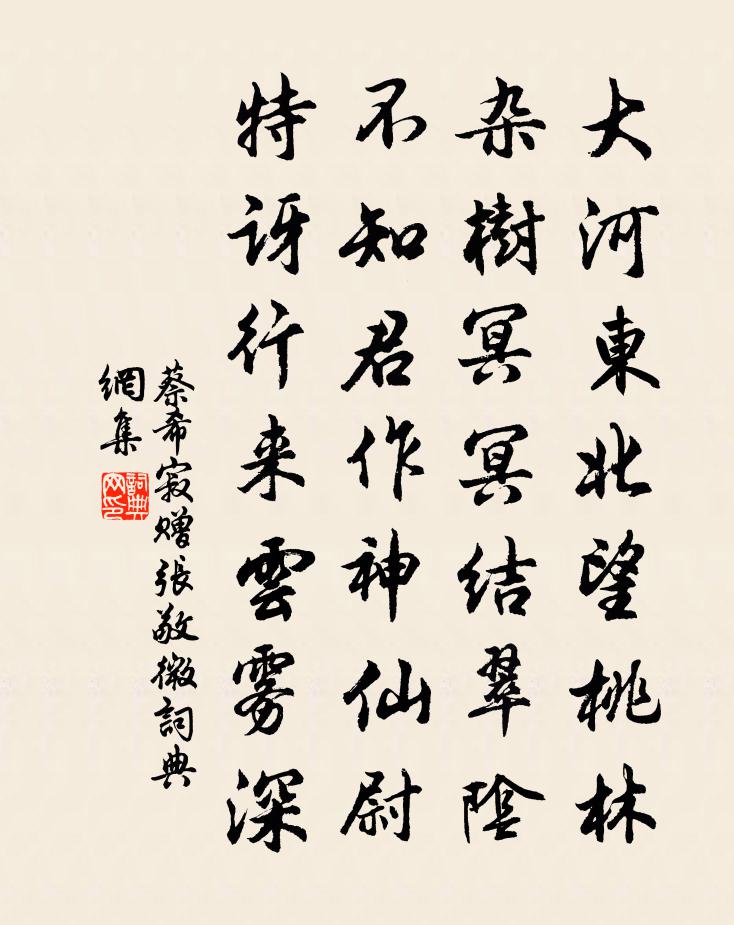 大河東北望桃林
杂樹冥冥結翠陰
不知君作神仙尉
特訝行来雲霧深
蔡希寂赠張敬微詞典
網集
詞典
网印